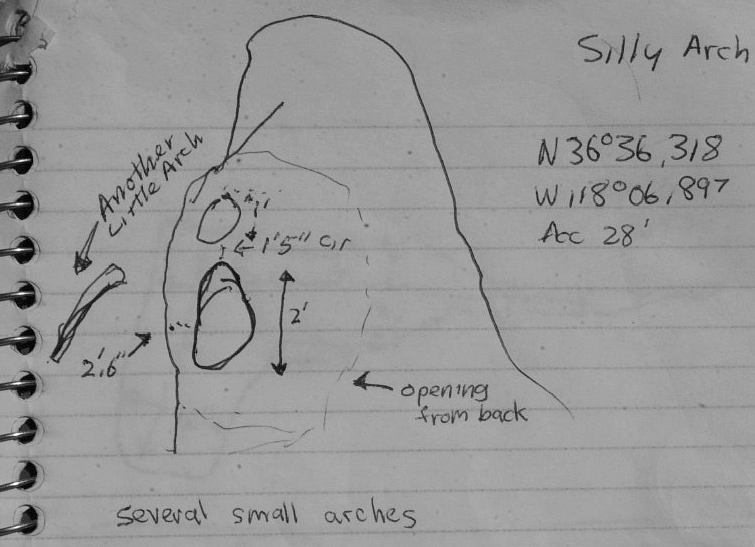 Silly Arch
N 36°36,318
W 118°06,897
Acc 28'
Another
Little Arch
1'
1'5" cir
2'
2',6"
opening
from back
several small arches